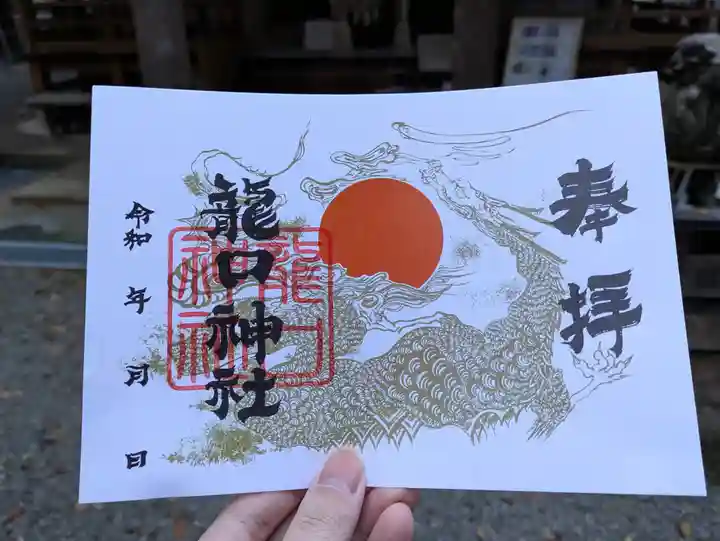 奉拝
龍口神社
龍口
神社
令和 年 月 日